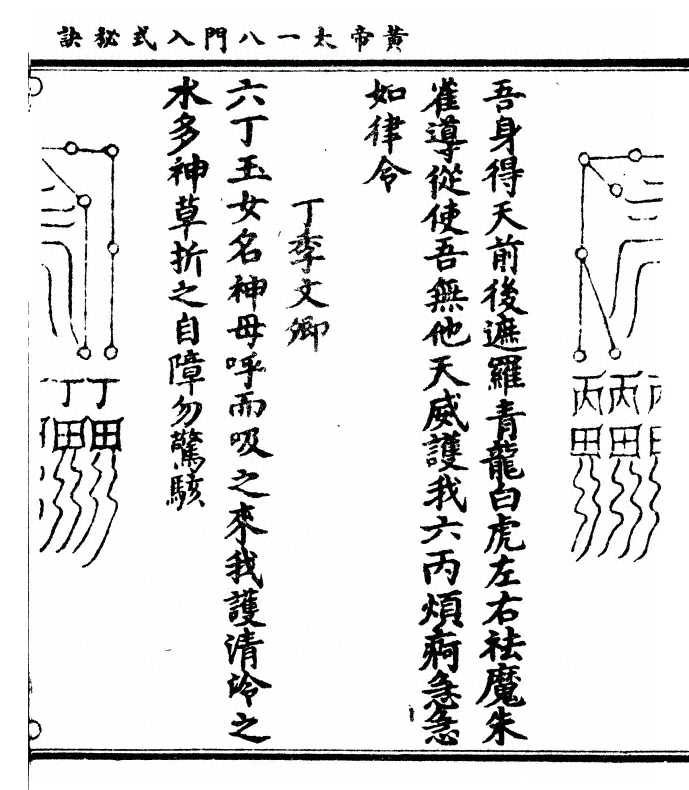 黃帝太一八門入式祕訣
丙丙丙
田田田
吾身得天前後遮羅青龍白虎左右祛魔朱
雀導從使吾無他天威護我六丙煩疴急急
如律令
丁季文卿
六丁玉女名神母呼而吸之來我護清泠之
水多神草折之自障勿驚駭
丁丁
田田